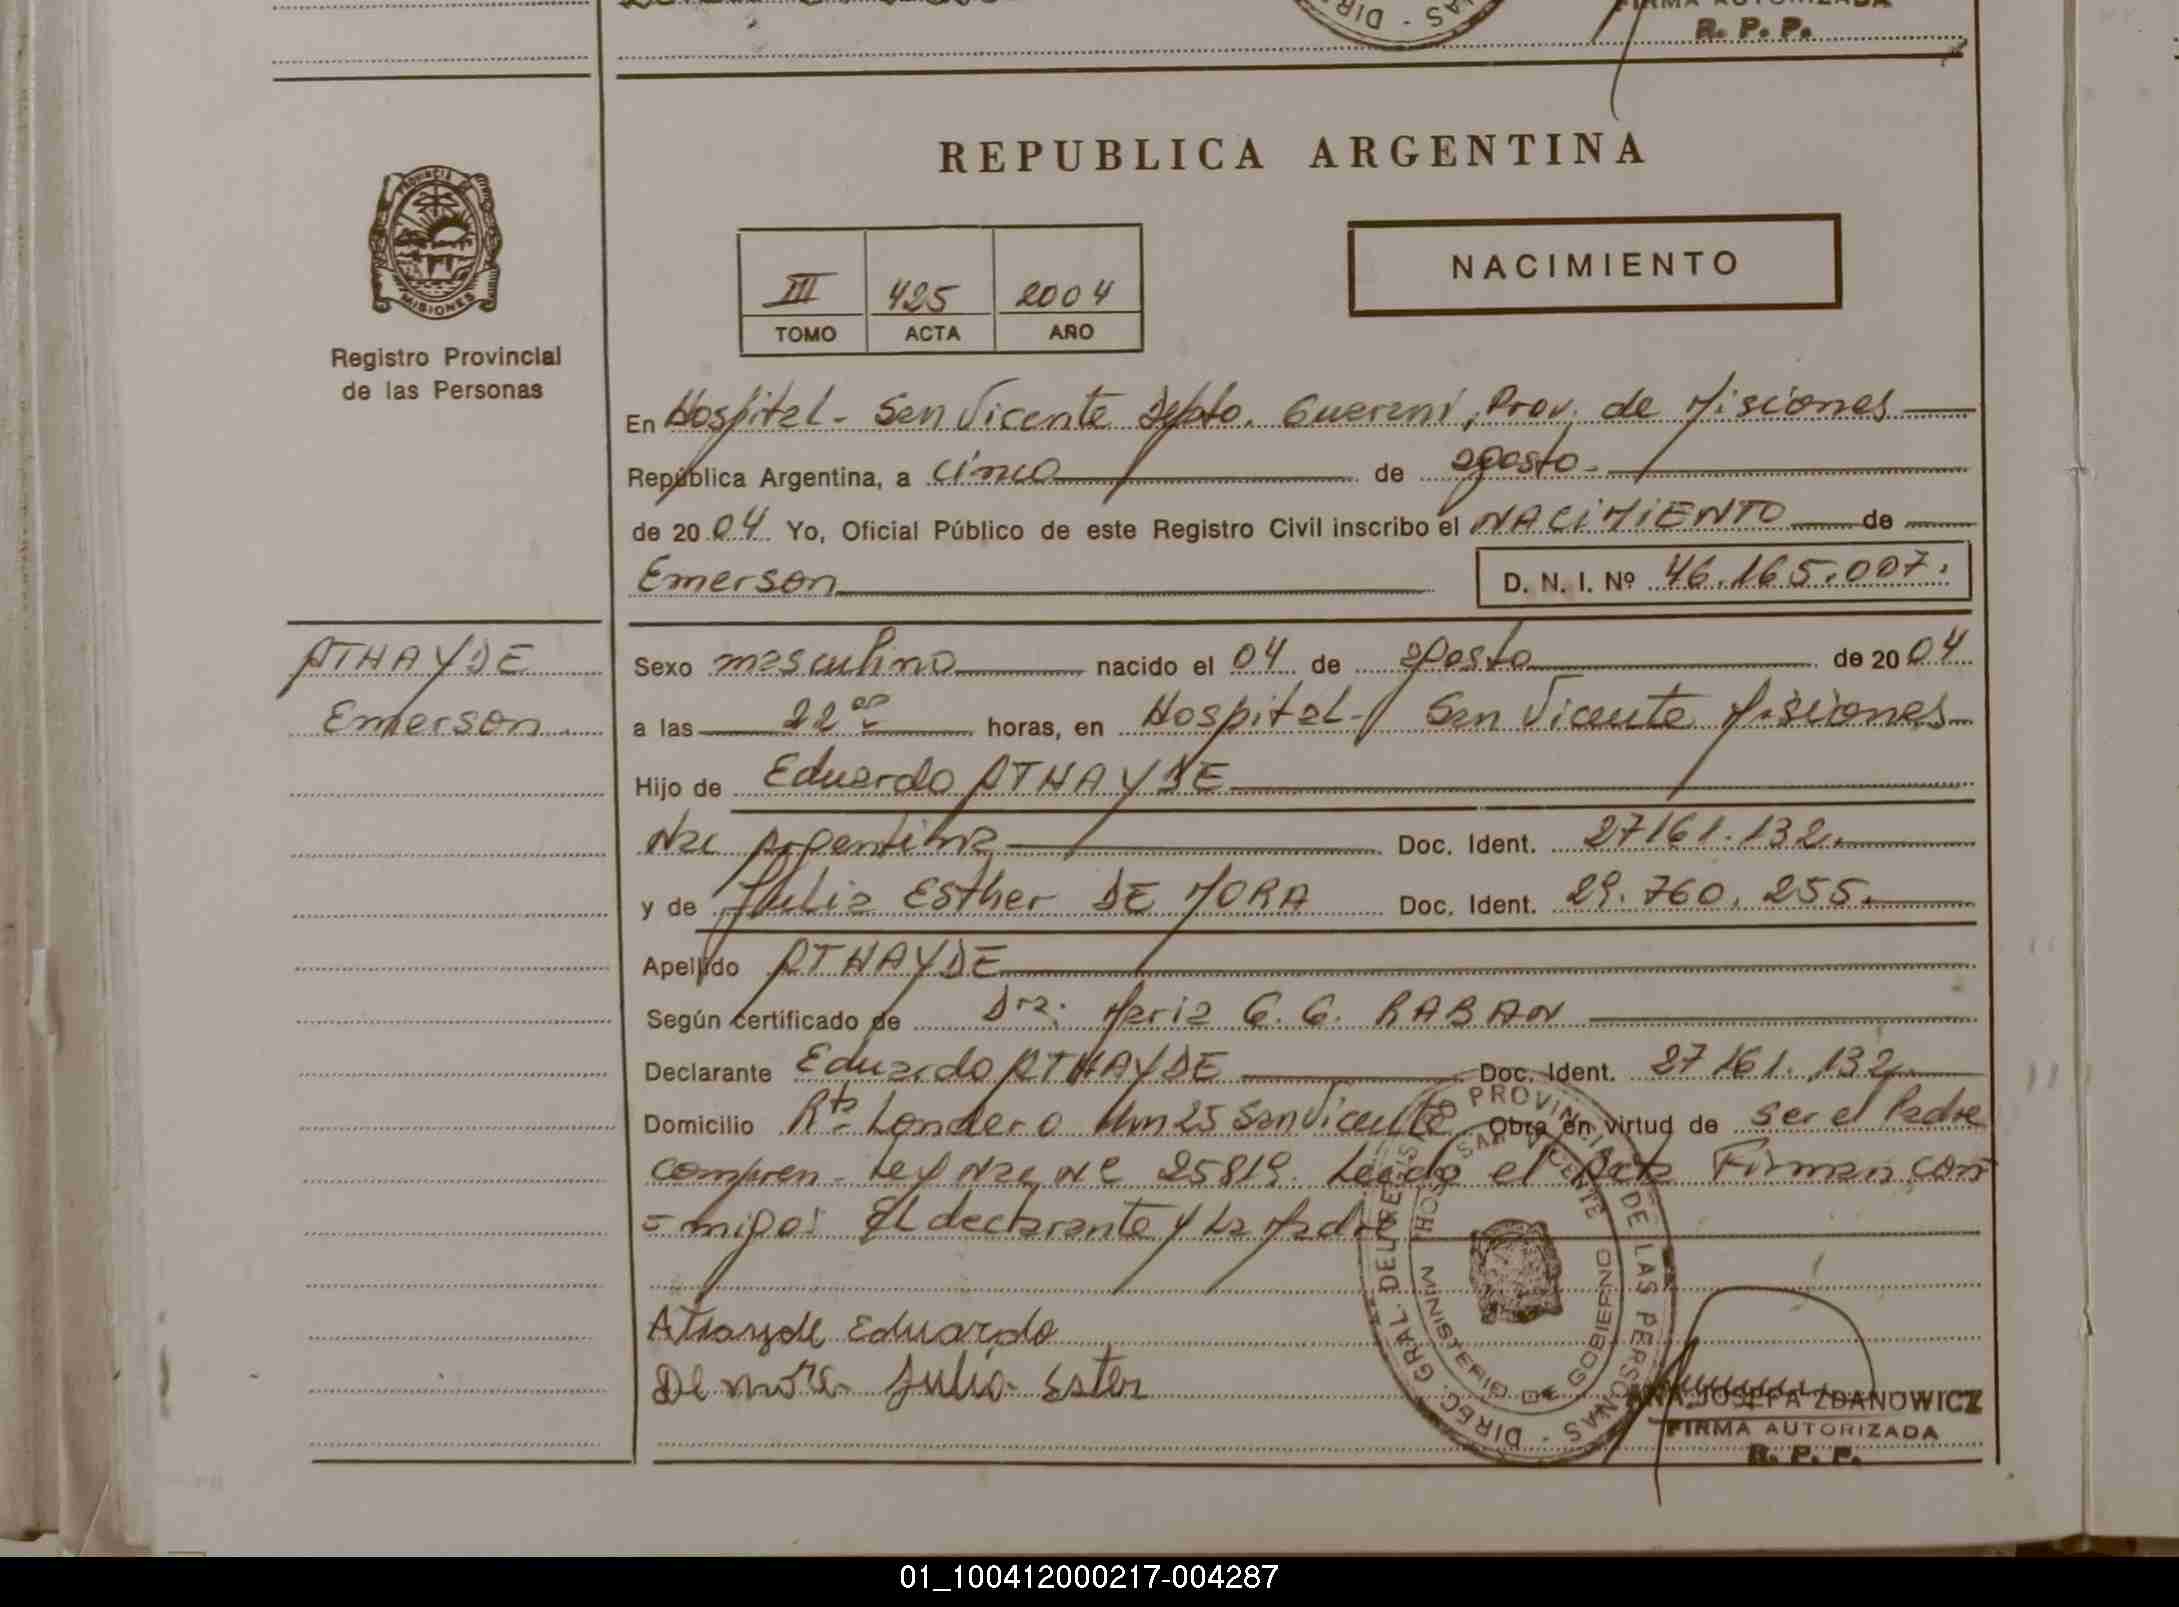 FIRMA AUTORIZADA
R. P. P.
REPUBLICA ARGENTINA
PROVINCIA DE
MISIONES
Registro Provincial
de las Personas
NACIMIENTO
III 425 2004
TOMO ACTA AÑO
En Hospital - San Vicente Depto. Guaraní, Prov. de Misiones
República Argentina, a cinco de agosto
de 2004 Yo, Oficial Público de este Registro Civil inscribo el NACIMIENTO de
Emerson D. N. I. Nº 46.165.007.
ATHAYDE
Emerson
Sexo masculino nacido el 04 de agosto de 2004
a las 22 00 horas, en Hospital - San Vicente Misiones
Hijo de Eduardo ATHAYDE
Nac Argentina Doc. Ident. 27161.132.
y de Julia Esther DE MORA Doc. Ident. 29.760.255.
Apellido ATHAYDE
Según certificado de Dra. Maria G. G. RABAN
Declarante Eduardo ATHAYDE Doc. Ident. 27161.132.
Domicilio Rta Londero Km 25 San Vicente Obra en virtud de ser el Padre
Compren - Ley Nac Nº 25819. Leida el Acta Firman con
= migo: El declarante y La Madre
Athayde Eduardo
De mora Julia Ester
DIREC. GRAL. DEL REGISTRO PROVINCIAL DE LAS PERSONAS
HOSP. SAN VICENTE
MINISTERIO DE GOBIERNO
ANA JOSEFA ZDANOWICZ
FIRMA AUTORIZADA
R. P. P.
01_100412000217-004287